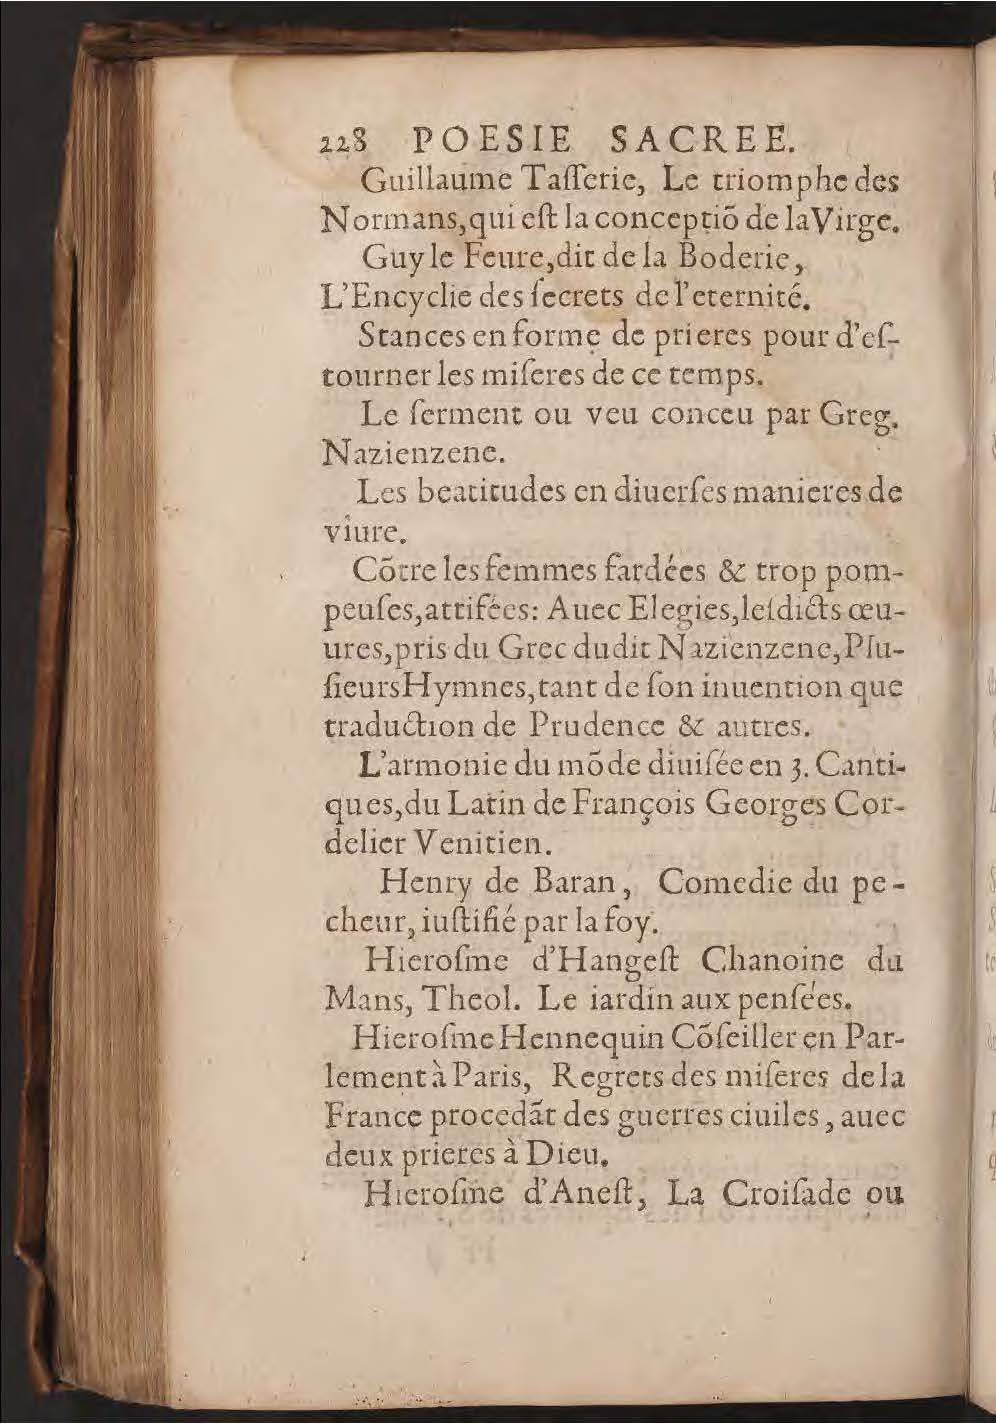 228 POESIE SACREE.
Guillaume Taſſerie, Le triomphe des
Normans, qui eſt la conceptiõ de la Virge.
Guy le Feure, dit de la Boderie,
L'Encyclie des ſecrets de l'eternité.
Stances en forme de prieres pour d'eſ-
tourner les miſeres de ce temps.
Le ſerment ou veu conceu par Greg.
Nazienzene.
Les beatitudes en diuerſes manieres de
viure.
Cõtre les femmes fardées & trop pom-
peuſes, attifées: Auec Elegies, leſdicts œu-
ures, pris du Grec dudit Nazienzene, Plu-
ſieurs Hymnes, tant de ſon inuention que
traduction de Prudence & autres.
L'armonie du mõde diuiſée en 3. Canti-
ques, du Latin de François Georges Cor-
delier Venitien.
Henry de Baran, Comedie du pe-
cheur, iuſtifié par la foy.
Hieroſme d'Hangeſt Chanoine du
Mans, Theol. Le iardin aux penſées.
Hieroſme Hennequin Cõſeiller en Par-
lement à Paris, Regrets des miſeres de la
France procedãt des guerres ciuiles, auec
deux prieres à Dieu.
Hieroſme d'Aneſt, La Croiſade ou